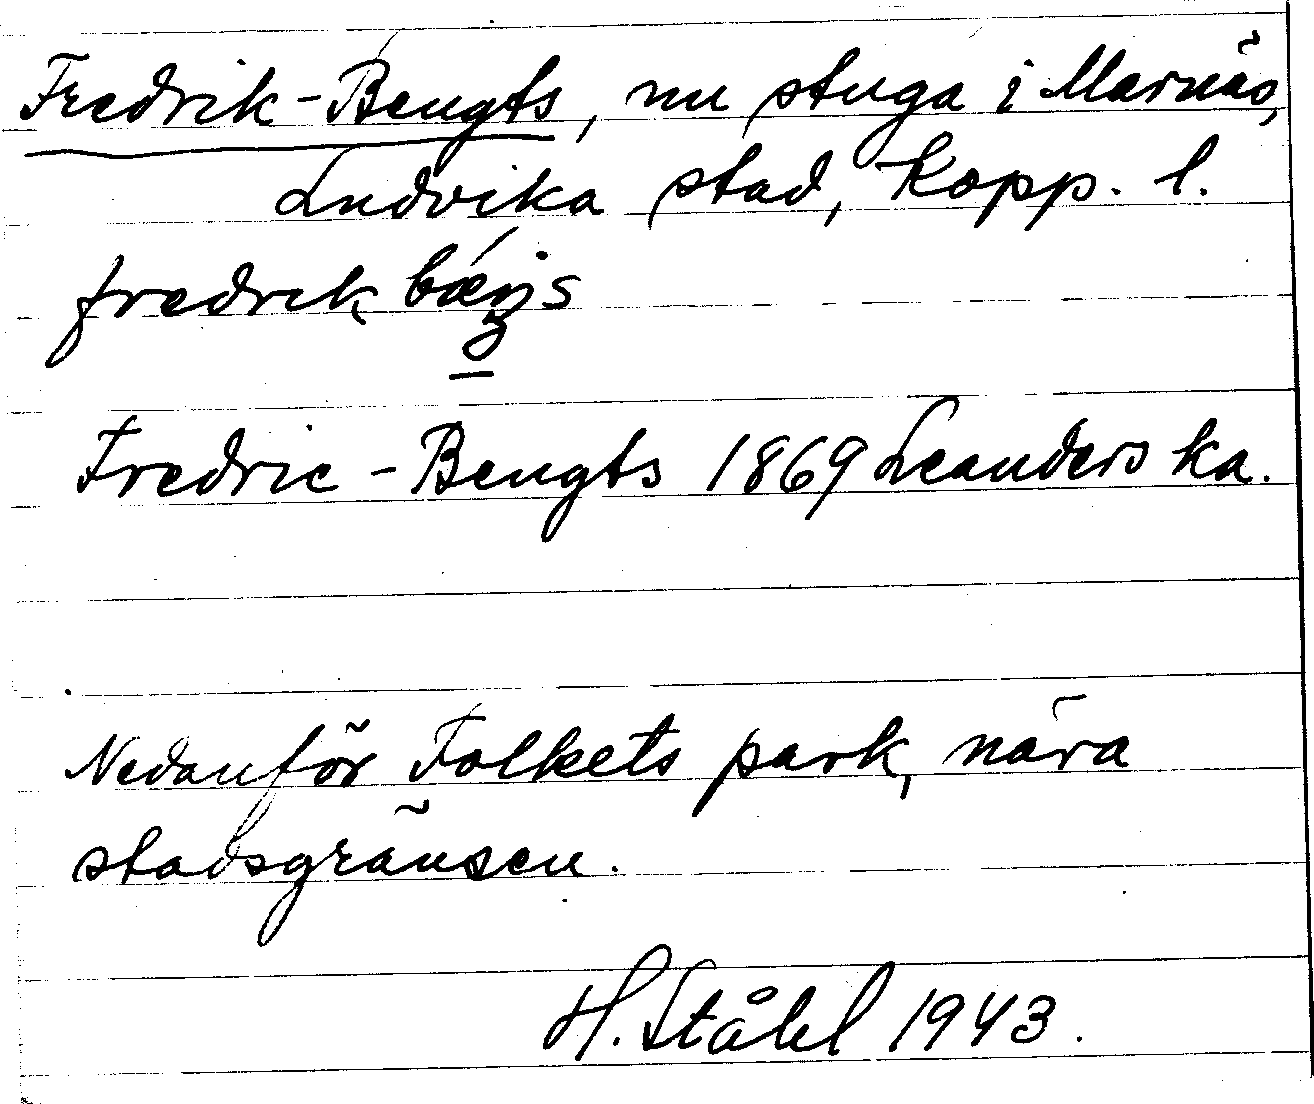 Fredrik-Bengts, nu stuga i Marnäs,
Ludvika stad, Kopp. l.
fredrik
Fredric-Bengts 1869 Leanders ka.
Nedanför Folkets park, nära
stadsgränsen.
H. Ståhl 1943.